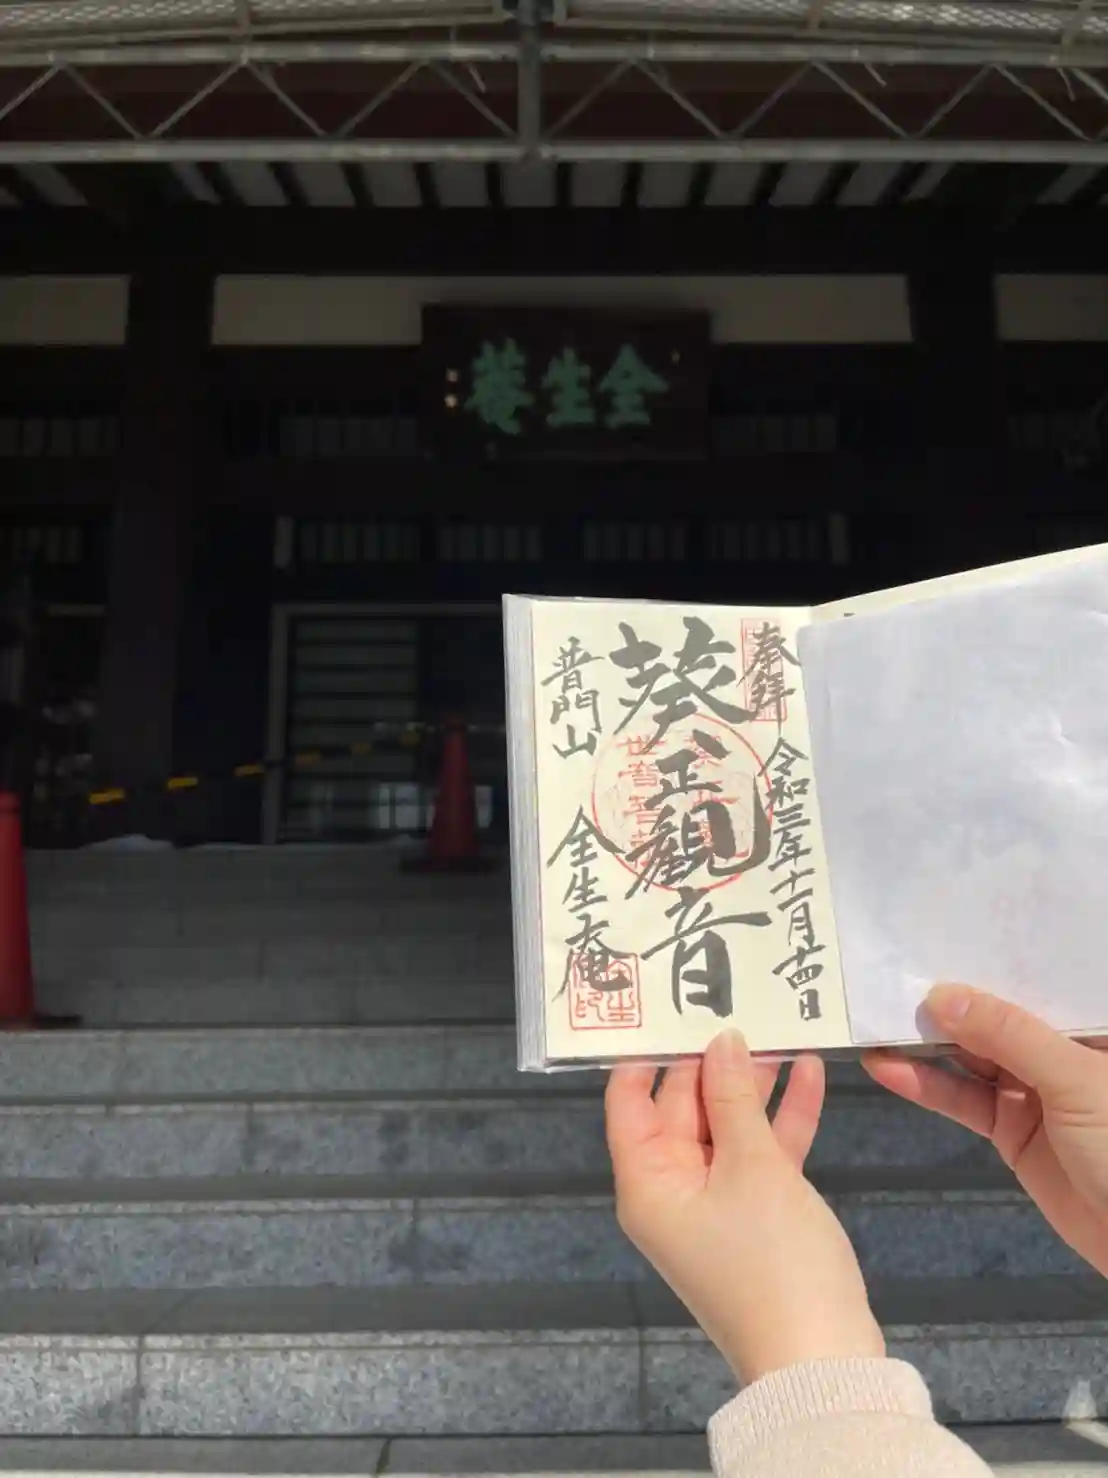 全生菴
奉拝
令和三年十一月廿四日
葵正観音
普門山
全生庵